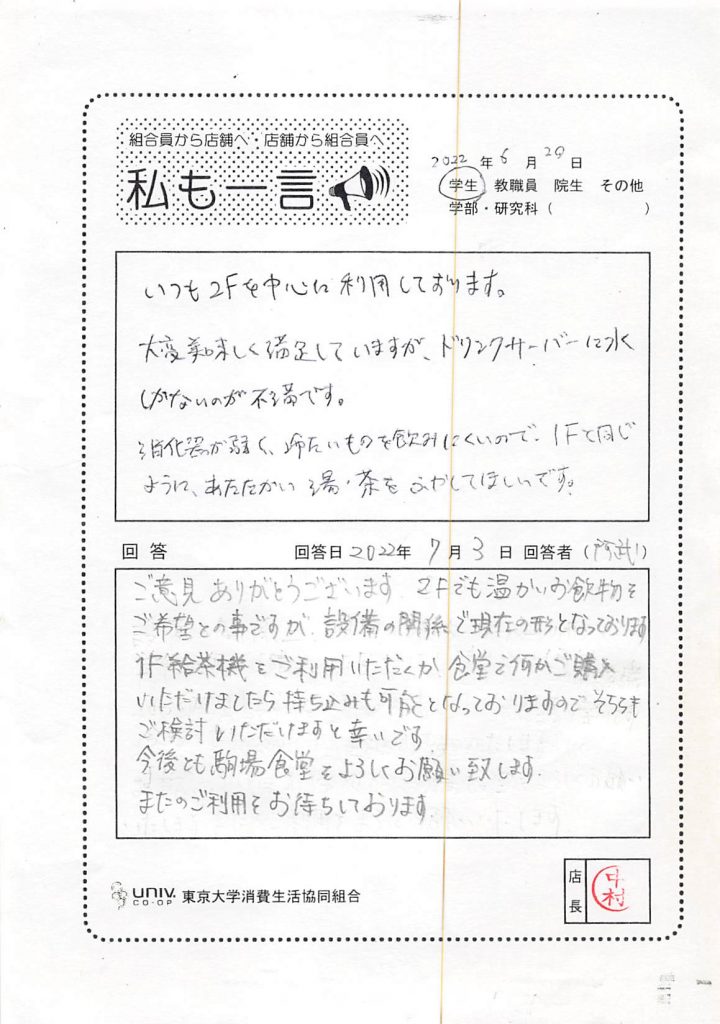 組合員から店舗へ・店舗から組合員へ
私も一言
2022年6月29日
学生 教職員 院生 その他
学部・研究科( )
いつも2Fを中心に利用しております。
大変美味しく満足していますが、ドリンクサーバーに水
しかないのが不満です。
消化器が弱く、冷たいものを飲みにくいので、1Fと同じ
ように、あたたかい湯・茶をふやしてほしいです。
回答 回答日2022年7月3日 回答者(阿武)
ご意見ありがとうございます。2Fでも温かいお飲物を
ご希望との事ですが、設備の関係で現在の形となっております
1F給茶機をご利用いただくか、食堂で何かご購入
いただけましたら持ち込みも可能となっておりますのでそちらを
ご検討いただけますと幸いです
今後とも駒場食堂をよろしくお願い致します.
またのご利用をお待ちしております
UNIV. CO-OP 東京大学消費生活協同組合
店長 中村